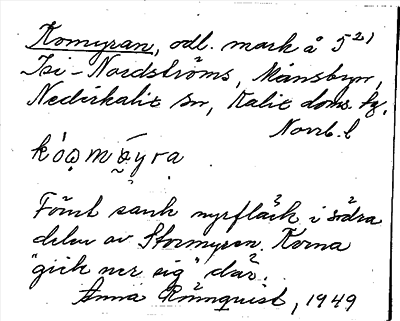 Komyran, odl. mark å 5²⁾
Isi-Nordströms, Månsbyn,
Nederkalix sn, Kalix doms. tg.
Norrb. l
Förut sank myrfläck i södra
delen av Stormyren. Korna
"gick ner sig" där.
Anna Rönnquist, 1949